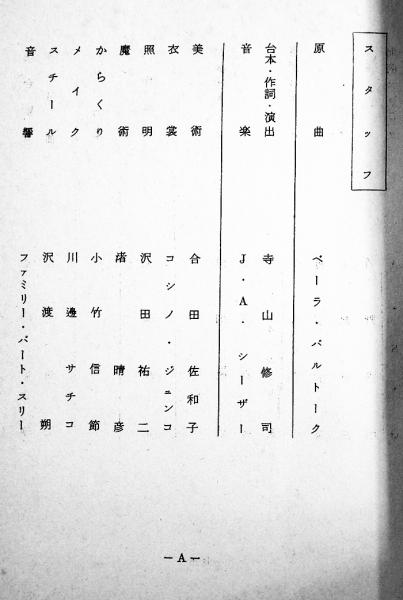 スタッフ
原曲 ベーラ・バルトーク
台本・作詞・演出 寺山修司
音楽 J・A・シーザー
美術 合田佐和子
衣裳 コシノ・ジュンコ
照明 沢田祐二
魔術 渚晴彦
からくり 小竹信節
メイク 川邊サチコ
スチール 沢渡朔
音響 ファミリー・パート・スリー
—A—